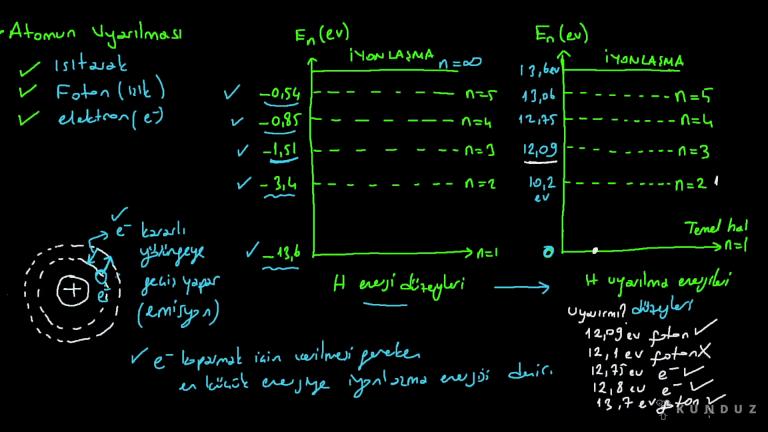 Atomun Uyarılması
✓ Isıtarak
✓ Foton (ışık)
✓ elektron (e⁻)
Eₙ (ev)
İYONLAŞMA n=∞
✓ -0,54 n=5
✓ -0,85 n=4
✓ -1,51 n=3
✓ -3,4 n=2
✓ -13,6 n=1
H enerji düzeyleri
Eₙ (ev)
İYONLAŞMA
13,6 ev
13,06 n=5
12,75 n=4
12,09 n=3
10,2 ev n=2
Temel hal
0 n=1
H uyarılma enerjileri
düzeyleri
Uyarır mı?
12,09 ev foton ✓
12,1 ev foton X
12,75 ev e⁻ ✓
12,8 ev e⁻ ✓
13,7 ev foton ✓
✓
e⁻ kararlı
yörüngeye
geçiş yapar
(emisyon)
+
e⁻
✓ e⁻ koparmak için verilmesi gereken
en küçük enerjiye iyonlaşma enerjisi denir.
KUNDUZ